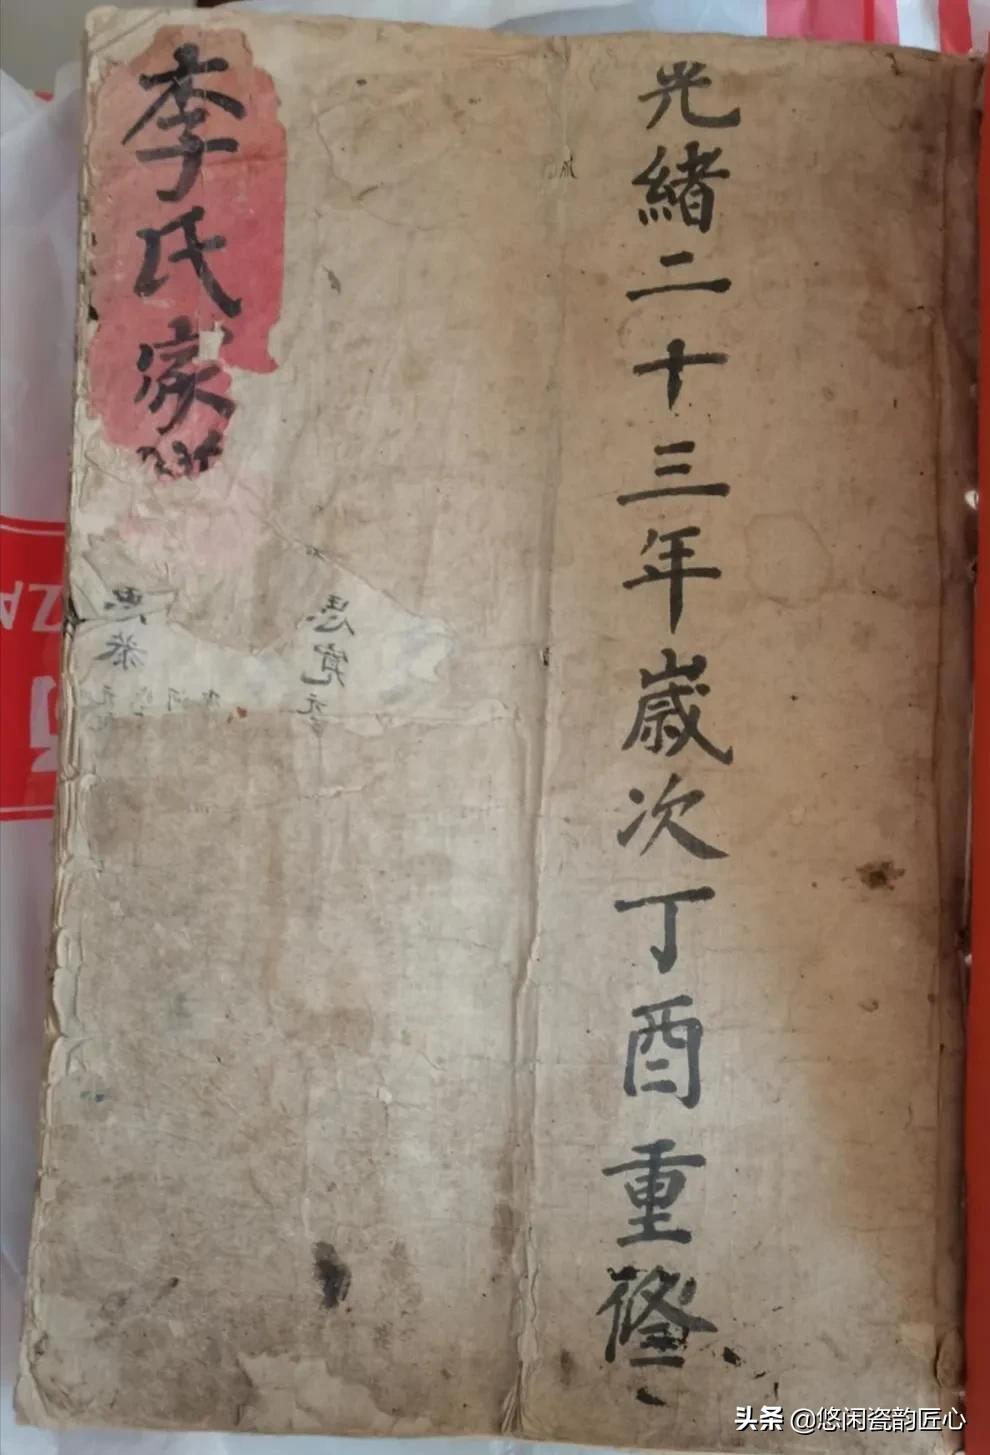 光緒二十三年歲次丁酉重修
李氏家
思寬
思恭
头条 @悠闲瓷韵匠心